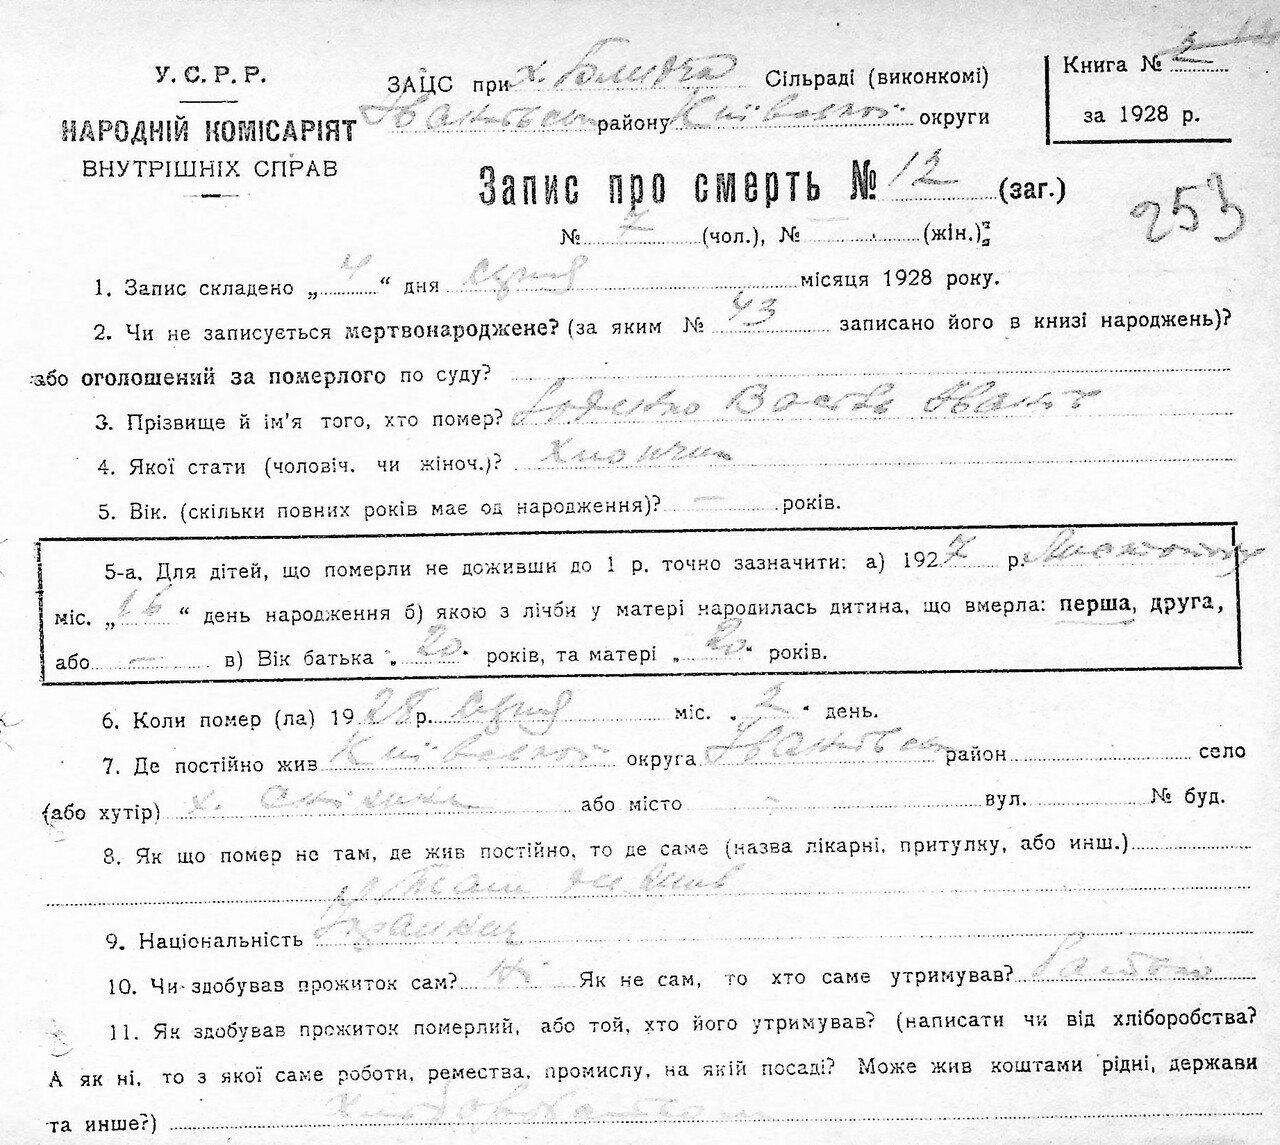 У. С. Р. Р.
НАРОДНІЙ КОМІСАРІЯТ
ВНУТРІШНІХ СПРАВ
ЗАЦС при х. Сільраді (виконкомі)
району Київської округи
Книга №
за 1928 р.
Запис про смерть № 12 (заг.)
253
№ 7 (чол.), № — (жін.)
1. Запис складено „ 4 “ дня серпня місяця 1928 року.
2. Чи не записується мертвонароджене? (за яким № 43 записано його в книзі народжень)?
або оголошений за померлого по суду?
3. Прізвище й ім'я того, хто помер?
4. Якої стати (чоловіч. чи жіноч.)? Хлопчик
5. Вік. (скільки повних років має од народження)? — років.
5-а. Для дітей, що померли не доживши до 1 р. точно зазначити: а) 1927 р. Листопаду
міс. „ 16 “ день народження б) якою з лічби у матері народилась дитина, що вмерла: перша, друга,
або — в) Вік батька „ 20 “ років, та матері „ 20 “ років.
6. Коли помер (ла) 1928 р. серпня міс. „ 2 “ день.
7. Де постійно жив Київської округа район село
(або хутір) х. або місто вул. № буд.
8. Як що помер не там, де жив постійно, то де саме (назва лікарні, притулку, або инш.)
там де жив
9. Національність
10. Чи здобував прожиток сам? Ні Як не сам, то хто саме утримував? Батько
11. Як здобував прожиток померлий, або той, хто його утримував? (написати чи від хліборобства?
А як ні, то з якої саме роботи, ремества, промислу, на якій посаді? Може жив коштами рідні, держави
та инше?)